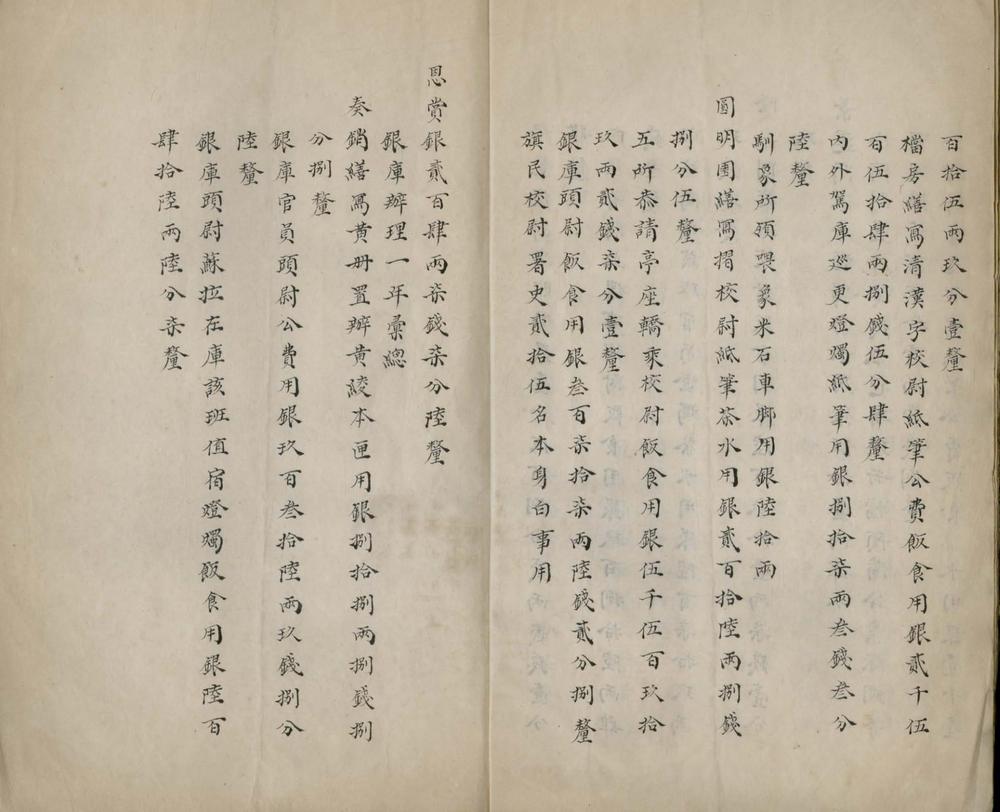 百拾伍兩玖分壹釐
檔房繕寫清漢字校尉紙筆公費飯食用銀貳千伍
百伍拾肆兩捌錢伍分肆釐
內外駕庫巡更燈燭紙筆用銀捌拾柒兩叁錢叁分
陸釐
馴象所領喂象米石車脚用銀陸拾兩
圓明園繕寫摺校尉紙筆茶水用銀貳百拾陸兩捌錢
捌分伍釐
五所恭請亭座轎乘校尉飯食用銀伍千伍百玖拾
玖兩貳錢柒分壹釐
銀庫頭尉飯食用銀叁百柒拾柒兩陸錢貳分捌釐
旗民校尉署史貳拾伍名本身白事用
恩賞銀貳百肆兩柒錢柒分陸釐
銀庫辦理一年彙總
奏銷繕寫黃册置辦黃綾本匣用銀捌拾捌兩捌錢捌
分捌釐
銀庫官員頭尉公費用銀玖百叁拾陸兩玖錢捌分
陸釐
銀庫頭尉蘇拉在庫該班值宿燈燭飯食用銀陸百
肆拾陸兩陸分柒釐